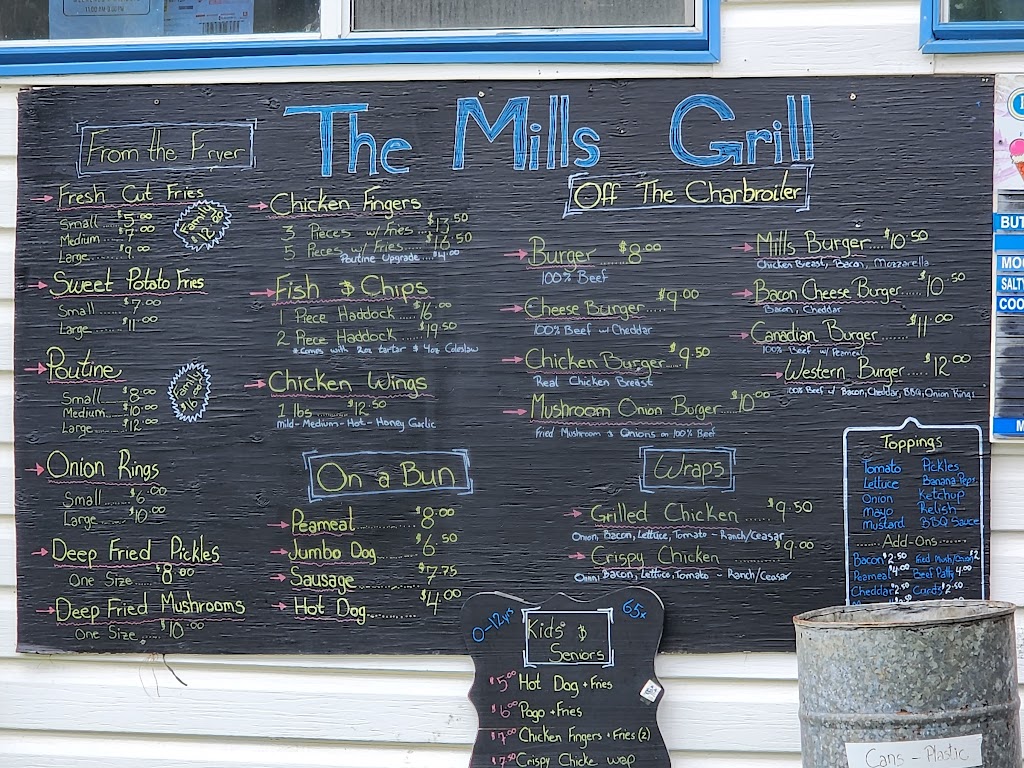 The Mills Grill
From the Fryer
Fresh Cut Fries
Small ..... $5.00
Medium ..... $7.00
Large ..... $9.00
Family $12.00
Sweet Potato Fries
Small ..... $7.00
Large ..... $11.00
Poutine
Small ..... $8.00
Medium ..... $10.00
Large ..... $12.00
Family
Onion Rings
Small ..... $6.00
Large ..... $10.00
Deep Fried Pickles
One Size ..... $8.00
Deep Fried Mushrooms
One Size ..... $10.00
Chicken Fingers
3 Pieces w/ fries ... $13.50
5 Pieces w/ Fries ... $16.50
Poutine Upgrade ... $4.00
Fish & Chips
1 Piece Haddock ... $16.00
2 Piece Haddock ... $19.50
*Comes with 2oz tartar & 4oz Coleslaw
Chicken Wings
1 lbs ..... $12.50
mild-Medium-Hot-Honey Garlic
On a Bun
Peameal ..... $8.00
Jumbo Dog ..... $6.50
Sausage ..... $7.75
Hot Dog ..... $4.00
Off The Charbroiler
Burger $8.00
100% Beef
Cheese Burger ... $9.00
100% Beef w/ Cheddar
Chicken Burger ... $9.50
Real Chicken Breast
Mushroom Onion Burger ... $10.00
Fried Mushroom & Onions on 100% Beef
Mills Burger ... $10.50
Chicken Breast, Bacon, Mozzarella
Bacon Cheese Burger ... $10.50
Bacon, Cheddar
Canadian Burger ... $11.00
100% Beef w/ Peameal
Western Burger ... $12.00
100% Beef w/ Bacon, Cheddar, BBQ, Onion Rings
Wraps
Grilled Chicken ..... $9.50
Onion, Bacon, Lettuce, Tomato - Ranch/Ceasar
Crispy Chicken $9.00
Bacon, Lettuce, Tomato - Ranch/Ceasar
Toppings
Tomato Pickles
Lettuce Banana Peps
Onion Ketchup
Mayo Relish
Mustard BBQ Sauce
Add-Ons
Bacon $2.50 Fried Mush/Onion $2
Peameal $4.00 Beef Patty 4.00
Cheddar $2.50 Curds $2.50
0-12yrs
65+
Kids' & Seniors
$5.00 Hot Dog + Fries
$6.00 Pogo + Fries
$7.00 Chicken Fingers + Fries (2)
$7.50 Crispy Chicke wap
Cans - Plastic
BUT
MO
SALTY
COO
M